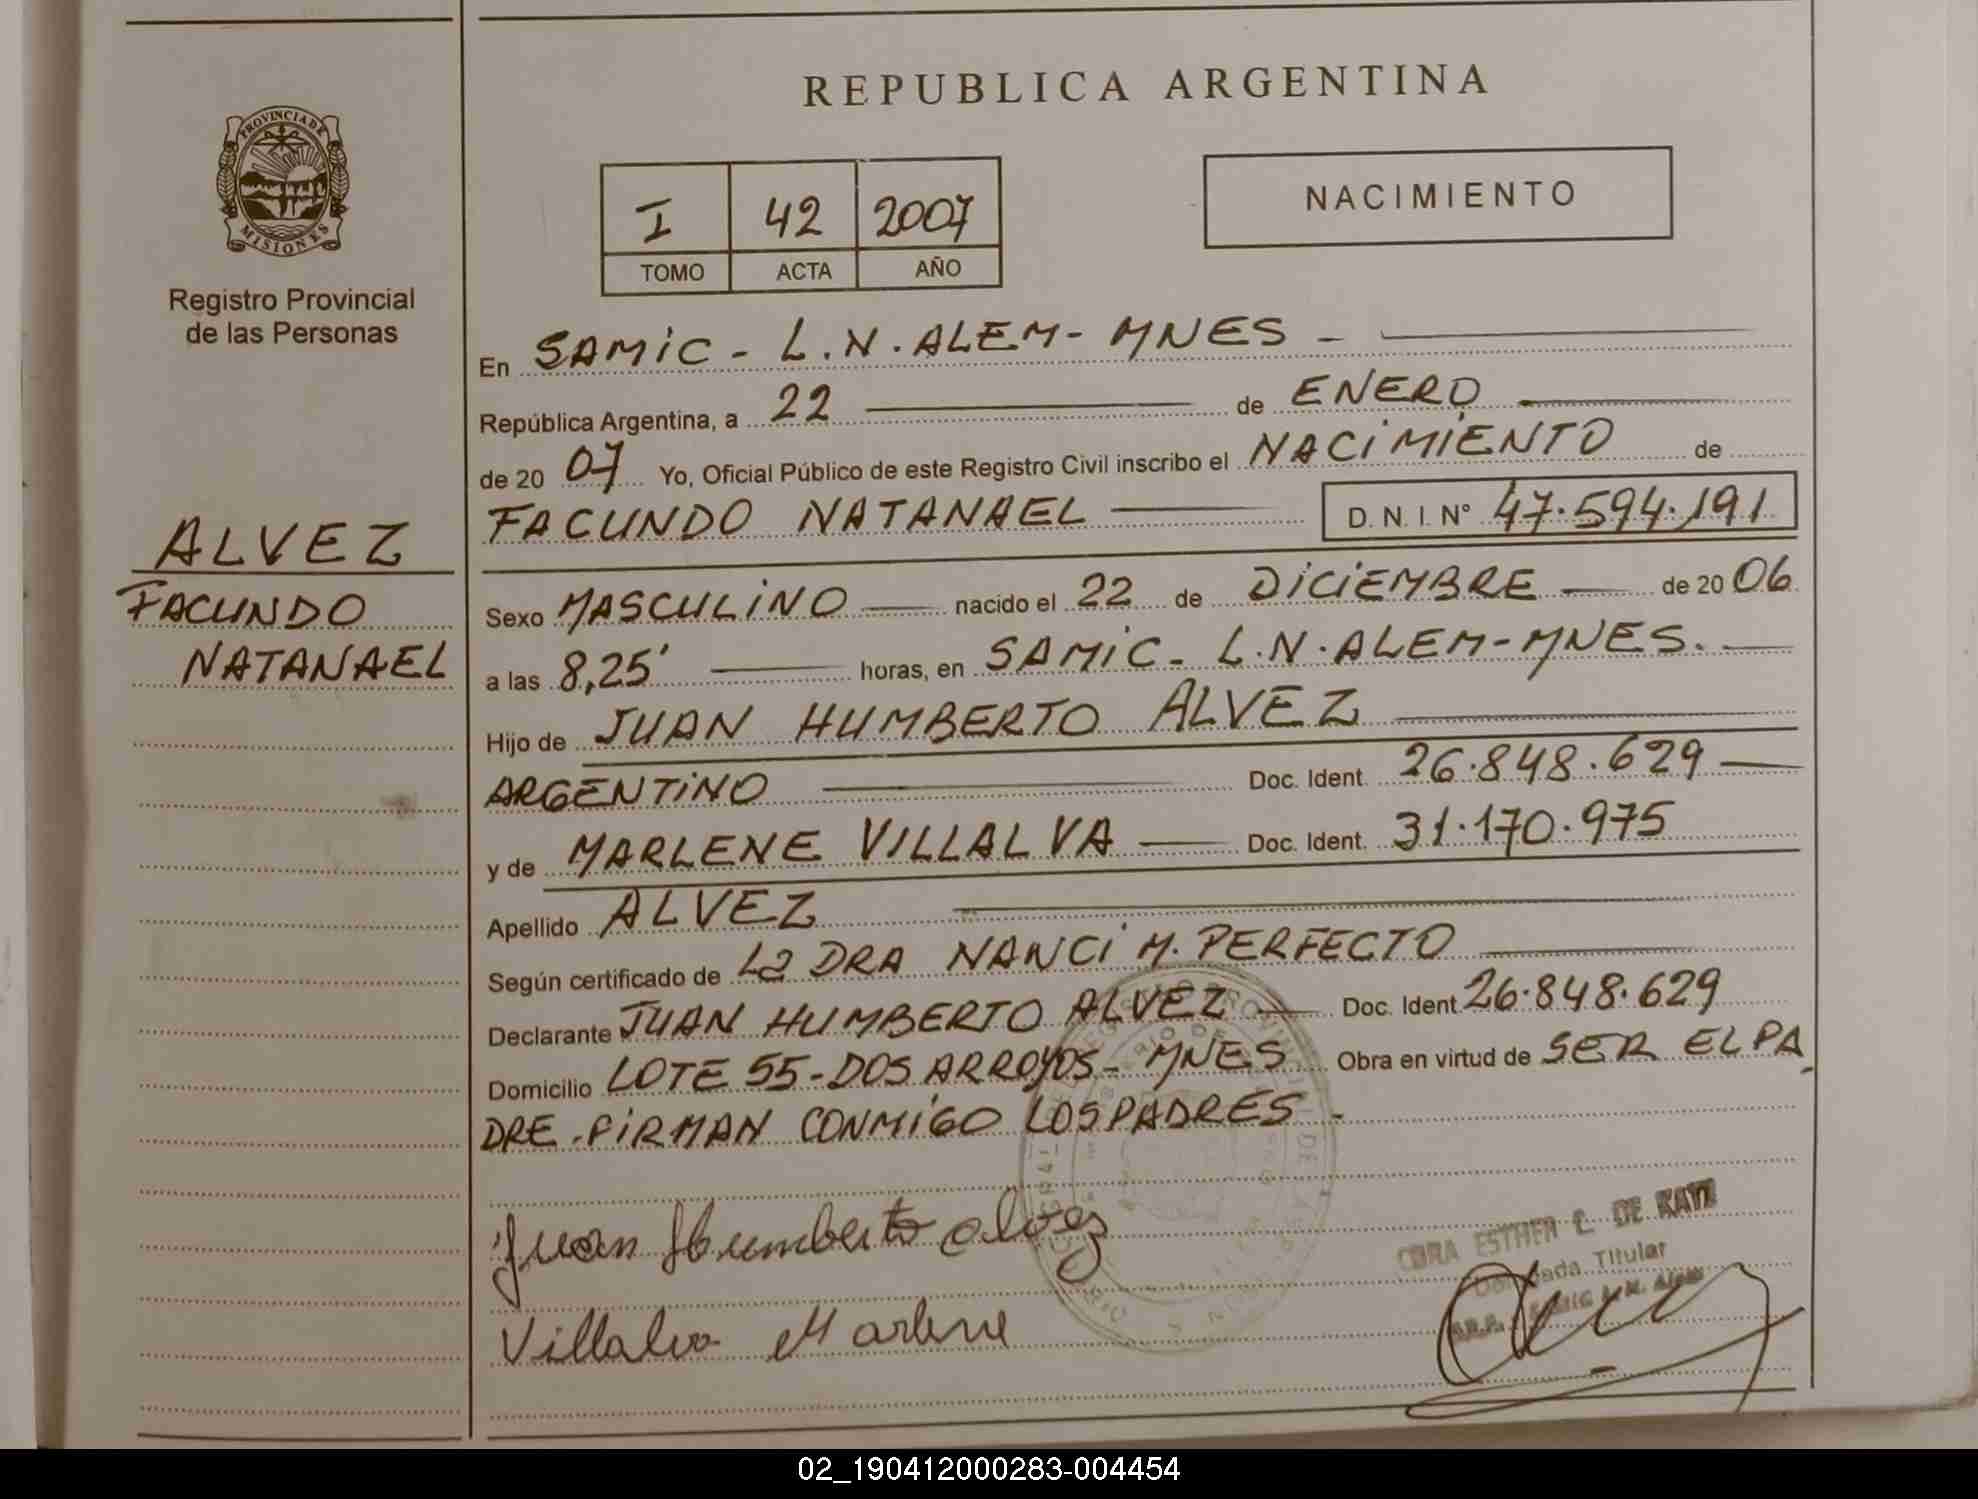 REPUBLICA ARGENTINA
PROVINCIA DE
MISIONES
Registro Provincial
de las Personas
I 42 2007
TOMO ACTA AÑO
NACIMIENTO
En SAMIC - L.N. ALEM - MNES -
República Argentina, a 22 de ENERO
de 20 07 Yo, Oficial Público de este Registro Civil inscribo el NACIMIENTO de
FACUNDO NATANAEL D. N. I. N° 47.594.191
ALVEZ
FACUNDO
NATANAEL
Sexo MASCULINO nacido el 22 de DICIEMBRE de 20 06
a las 8,25' horas, en SAMIC - L.N. ALEM - MNES.
Hijo de JUAN HUMBERTO ALVEZ
ARGENTINO Doc. Ident. 26.848.629
y de MARLENE VILLALVA Doc. Ident. 31.170.975
Apellido ALVEZ
Según certificado de La DRA NANCI M. PERFECTO
Declarante JUAN HUMBERTO ALVEZ Doc. Ident 26.848.629
Domicilio LOTE 55 - DOS ARROYOS - MNES Obra en virtud de SER EL PA
DRE. FIRMAN CONMIGO LOS PADRES -
Juan Humberto alvez
Villalva Marlene
ESTHER C. DE KATZ
Titular
02_190412000283-004454